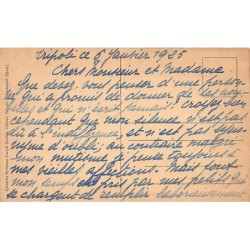 Tripoli ce 6 Janvier 1935
Chers Monsieur et Madame
Que devez-vous penser d'une personne
qui a promis de donner de ses nou-
velles et qui n'a ... jamais! Croyez
cependant que mon silence n'est pas
dû à l'indifférence et n'est pas syno
nyme d'oubli; au contraire malgré
mon mutisme je pense toujours à
mes vieilles affections. Mais tout
mon temps est pris par mes petits qui
se chargent de remplir laborieusement